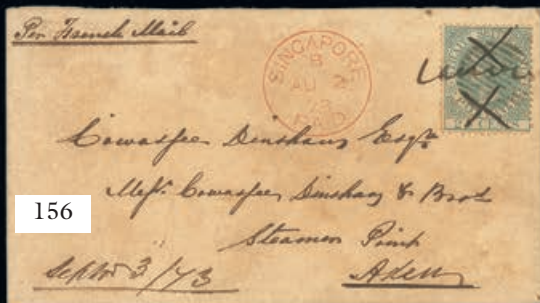 Per French Mail
SINGAPORE
B
AU 2
73
PAID
Cowasjee Dinshaw Esqr
Messrs. Cowasjee Dinshaw & Bros
Steamer Point
Aden
Septbr 3/73
156